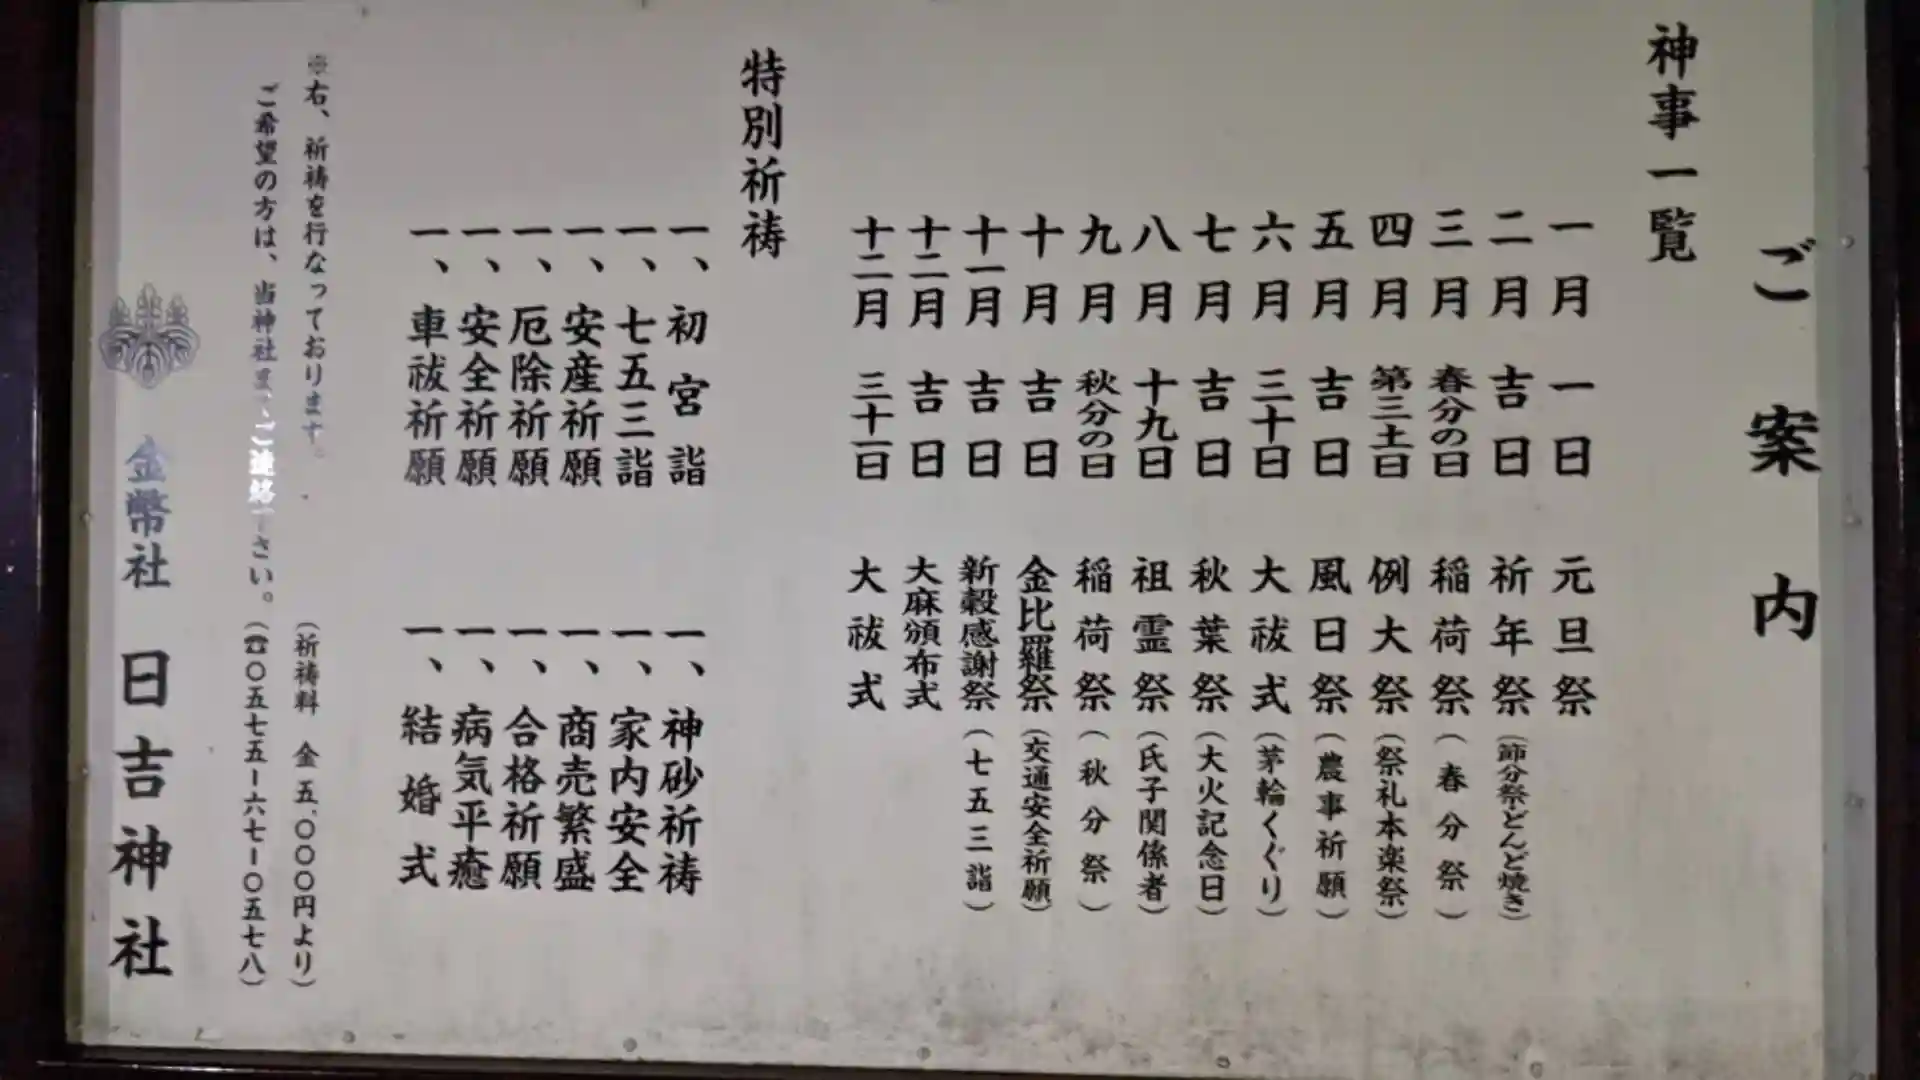 ご案内
神事一覧
一月 一日 元旦祭
二月 吉日 祈年祭(節分祭・どんど焼き)
三月 春分の日 稲荷祭(春分祭)
四月 第三土日 例大祭(祭礼本楽祭)
五月 吉日 風日祭(農事祈願)
六月 三十日 大祓式(茅輪くぐり)
七月 吉日 秋葉祭(大火記念日)
八月 十九日 祖霊祭(氏子関係者)
九月 秋分の日 稲荷祭(秋分祭)
十月 吉日 金比羅祭(交通安全祈願)
十一月 吉日 新穀感謝祭(七五三詣)
十二月 吉日 大麻頒布式
十二月 三十一日 大祓式
特別祈祷
一、初宮詣 一、神砂祈祷
一、七五三詣 一、家内安全
一、安産祈願 一、商売繁盛
一、厄除祈願 一、合格祈願
一、安全祈願 一、病気平癒
一、車祓祈願 一、結婚式
※右、祈祷を行なっております。(祈祷料 金五、〇〇〇円より)
ご希望の方は、当神社までご連絡下さい。(☎〇五七五ー六七ー〇五七八)
金幣社 日吉神社